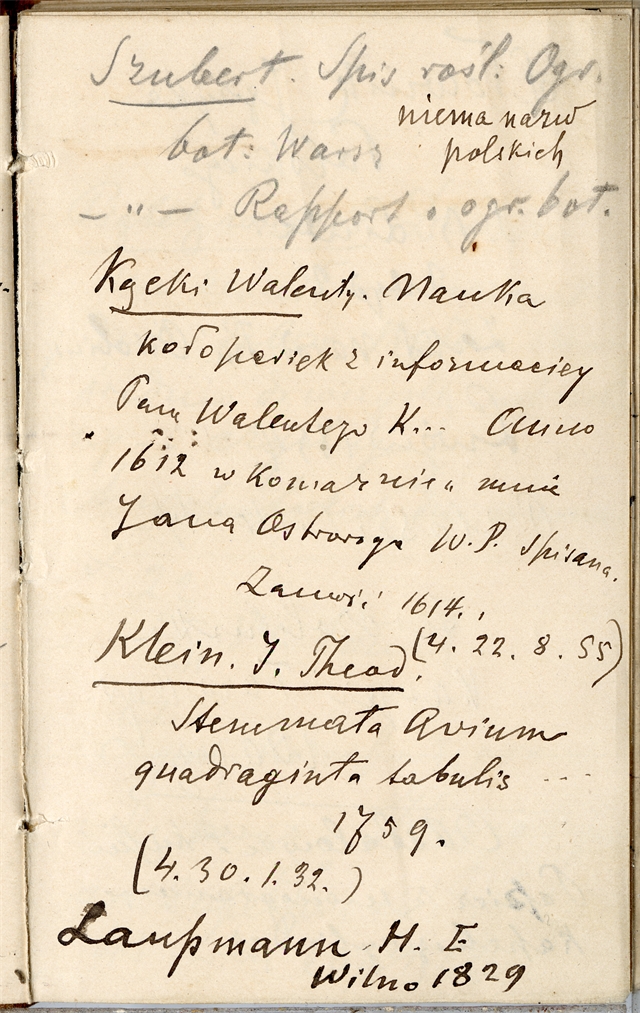 Szubert. Spis rośl: Ogr.
niema nazw
bot: Warsz polskich
— " — Rapport o ogr. bot.
Kącki Walenty. Nauka
koło pasiek z informaciey
Pana Walentego K... Anno
1612 w Komarnie
Jana Ostroroga W. P. Spisana.
Zamość 1614.,
Klein. J. Theod. (4. 22. 8. 55)
Stemmata Avium
quadraginta tabulis ...
1759.
(4. 30. 1. 32.)
H. E
Wilno 1829